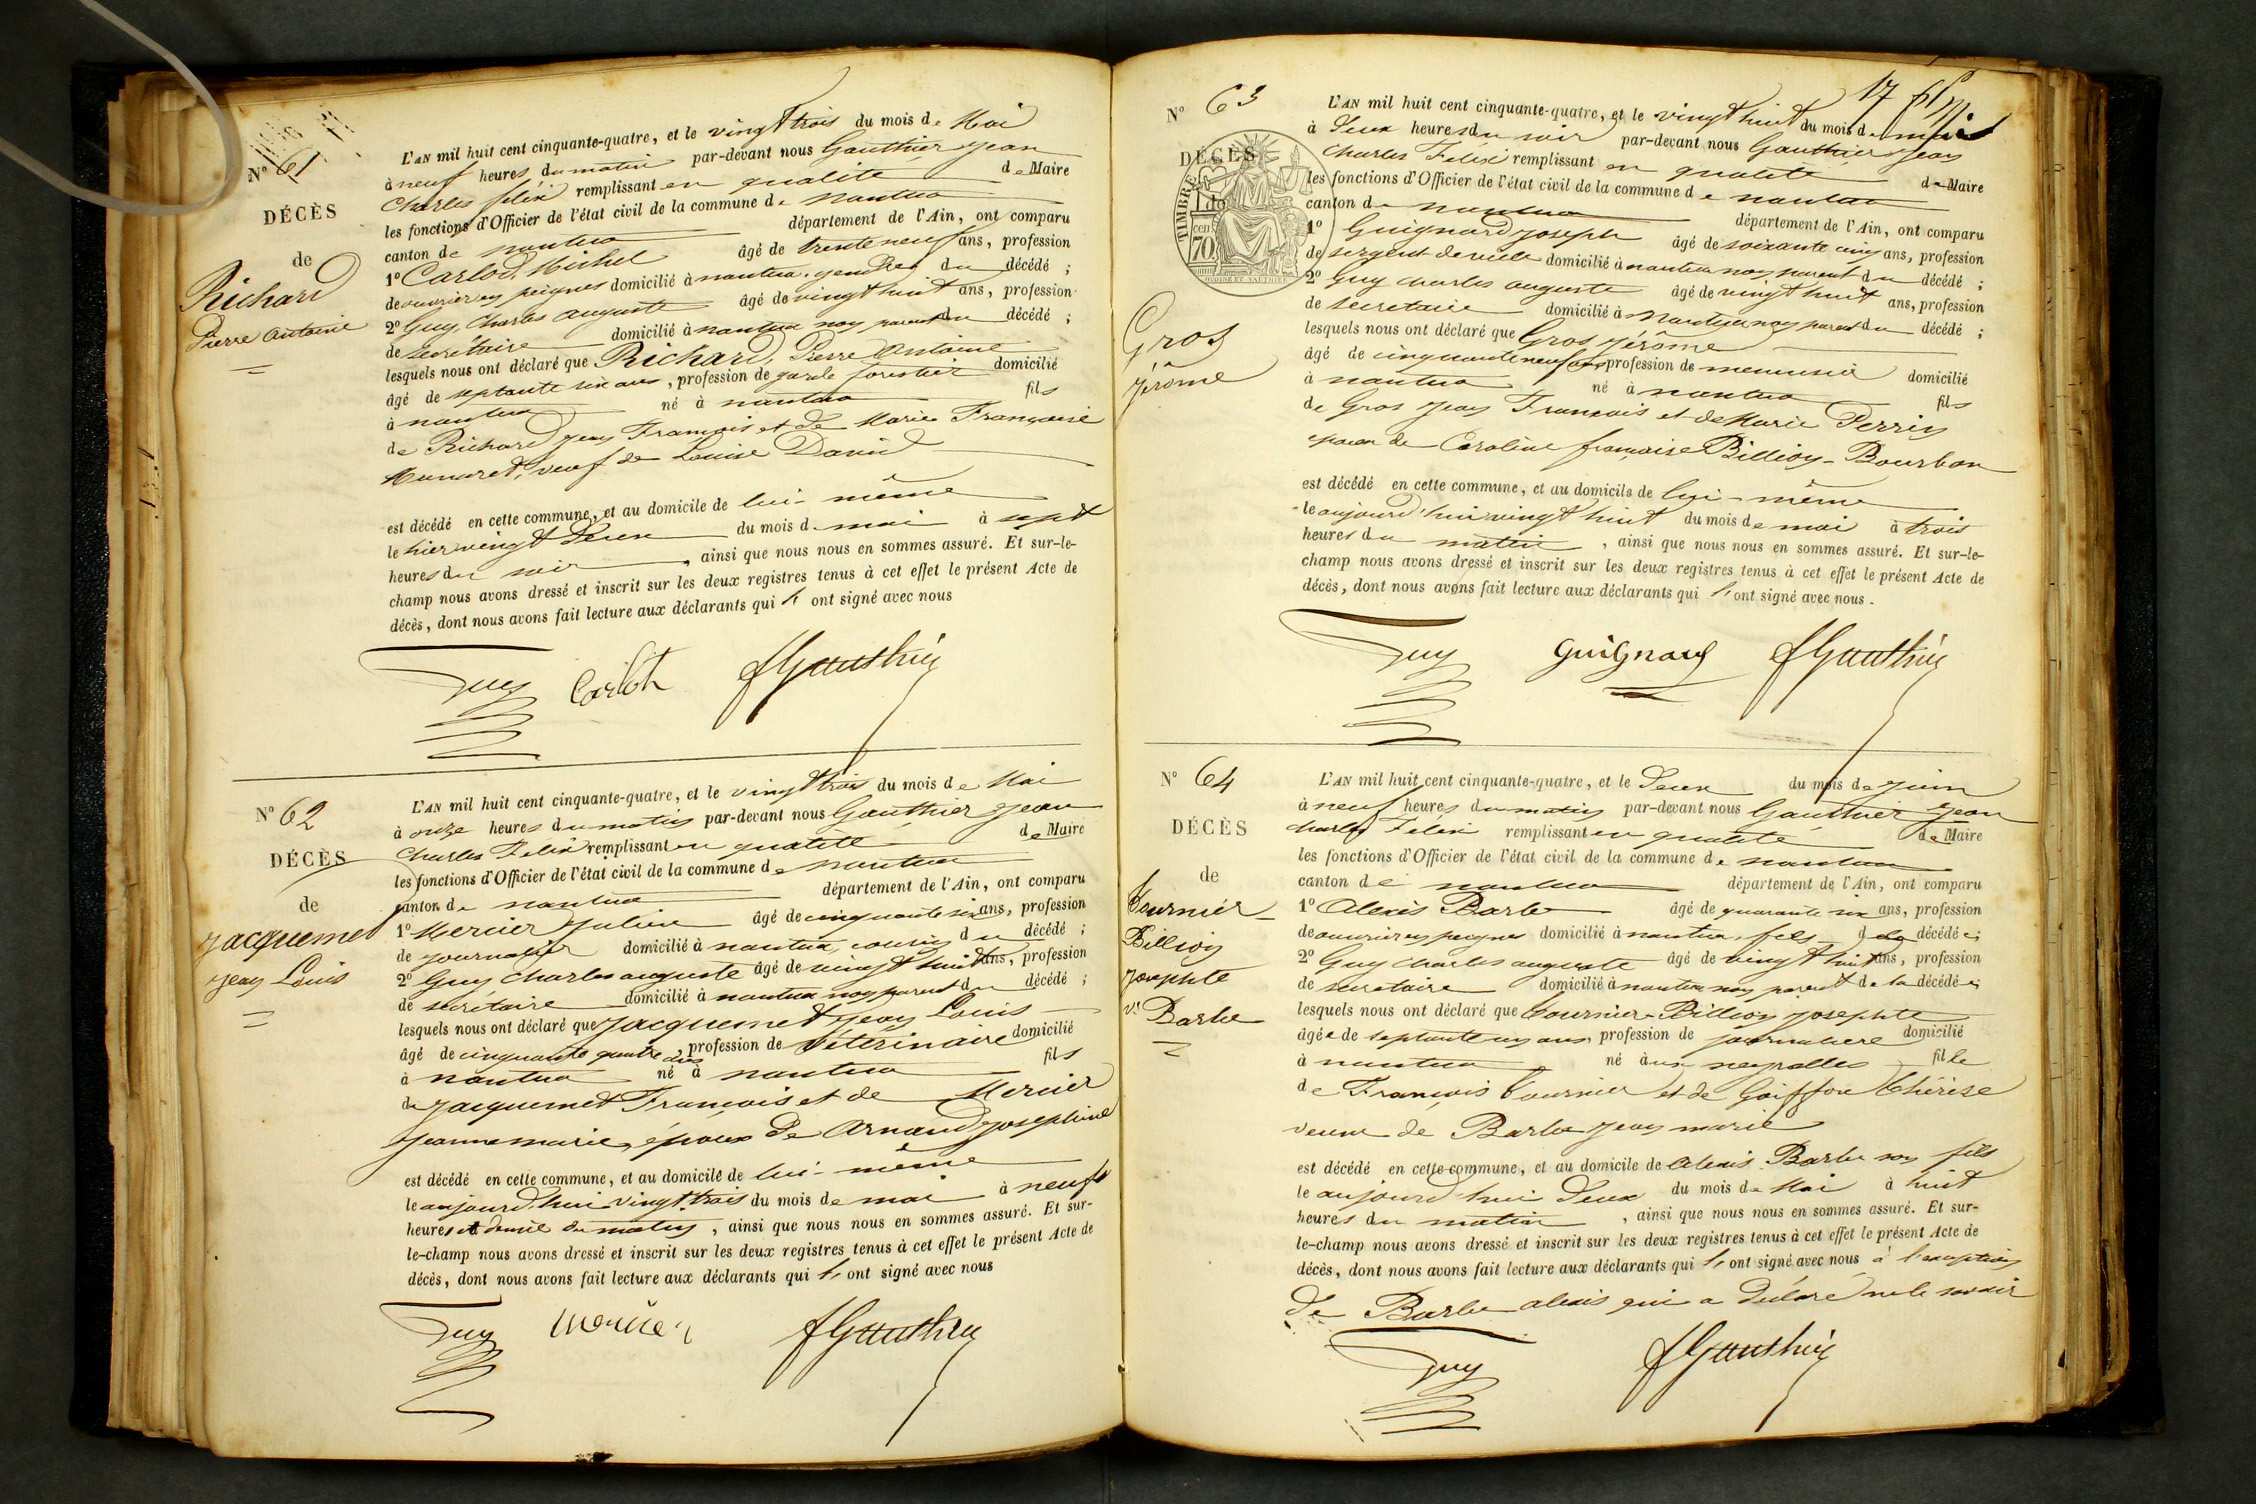 N° 61
DÉCÈS
de
Richard
Pierre Antoine
L'AN mil huit cent cinquante-quatre, et le vingt trois du mois de Mai
à neuf heures du matin par-devant nous Gauthier Jean
Charles félix remplissant en qualité de Maire
les fonctions d'Officier de l'état civil de la commune de nantua
canton de nantua département de l'Ain, ont comparu
1° Carlod, Michel âgé de trente neuf ans, profession
de ouvrier en peignes domicilié à nantua, gendre du décédé ;
2° Guy, Charles auguste âgé de vingt huit ans, profession
de secrétaire domicilié à nantua non parent du décédé ;
lesquels nous ont déclaré que Richard, Pierre Antoine
âgé de septante six ans, profession de garde forestier domicilié
à nantua né à nantua fils
de Richard Jean François et de Marie Françoise
veuf de Louise David
est décédé en cette commune, et au domicile de lui-même
le hier vingt deux du mois de mai à sept
heures du soir, ainsi que nous nous en sommes assuré. Et sur-le-
champ nous avons dressé et inscrit sur les deux registres tenus à cet effet le présent Acte de
décès, dont nous avons fait lecture aux déclarants qui l' ont signé avec nous
Guy Carlod fGauthier
N° 62
DÉCÈS
de
Jacquemet
Jean Louis
L'AN mil huit cent cinquante-quatre, et le vingt trois du mois de Mai
à onze heures du matin par-devant nous Gauthier Jean
Charles Felix remplissant en qualité de Maire
les fonctions d'Officier de l'état civil de la commune de nantua
canton de nantua département de l'Ain, ont comparu
1° Mercier Julien âgé de cinquante six ans, profession
de journalier domicilié à nantua, cousin du décédé ;
2° Guy Charles auguste âgé de vingt huit ans, profession
de secrétaire domicilié à nantua non parent du décédé ;
lesquels nous ont déclaré que Jacquemet Jean Louis
âgé de cinquante quatre ans, profession de Vétérinaire domicilié
à nantua né à nantua fils
de Jacquemet François et de Mercier
Jeanne marie, époux de Arnaud Josephine
est décédé en cette commune, et au domicile de lui-même
le aujourd'hui vingt trois du mois de mai à neuf
heures et demie du matin, ainsi que nous nous en sommes assuré. Et sur-
le-champ nous avons dressé et inscrit sur les deux registres tenus à cet effet le présent Acte de
décès, dont nous avons fait lecture aux déclarants qui l' ont signé avec nous
Guy mercier fGauthier
17
N° 63
DÉCÈS
TIMBRE
cen 70
Gros
Jérôme
L'AN mil huit cent cinquante-quatre, et le vingt huit du mois de mai
à deux heures du soir par-devant nous Gauthier Jean
Charles Félix remplissant en qualité de Maire
les fonctions d'Officier de l'état civil de la commune de nantua
canton de nantua département de l'Ain, ont comparu
1° Guignard Joseph âgé de soixante cinq ans, profession
de sergent de ville domicilié à nantua non parent du décédé ;
2° Guy Charles auguste âgé de vingt huit ans, profession
de secretaire domicilié à Nantua non parent du décédé ;
lesquels nous ont déclaré que Gros Jérôme
âgé de cinquante neuf ans, profession de menuisier domicilié
à nantua né à nantua fils
de Gros Jean François et de Marie Perrin
époux de Caroline françoise Billion-Bourbon
est décédé en cette commune, et au domicile de lui-même
le aujourd'hui vingt huit du mois de mai à trois
heures du matin, ainsi que nous nous en sommes assuré. Et sur-le-
champ nous avons dressé et inscrit sur les deux registres tenus à cet effet le présent Acte de
décès, dont nous avons fait lecture aux déclarants qui l' ont signé avec nous.
Guy Guignard fGauthier
N° 64
DÉCÈS
de
Tournier-
Billion
Josephte
Ve Barbe
L'AN mil huit cent cinquante-quatre, et le deux du mois de Juin
à neuf heures du matin par-devant nous Gauthier Jean
Charles Felix remplissant en qualité de Maire
les fonctions d'Officier de l'état civil de la commune de nantua
canton de nantua département de l'Ain, ont comparu
1° Alexis Barbe âgé de quarante six ans, profession
de ouvrier en peignes domicilié à nantua, fils de la décédée ;
2° Guy Charles auguste âgé de vingt huit ans, profession
de secretaire domicilié à nantua non parent de la décédée ;
lesquels nous ont déclaré que Tournier-Billion Josephte
âgée de septante un ans, profession de journaliere domicilié
à nantua né aux neyrolles fille
de François Tournier et de Goiffon Thérèse
veuve de Barbe Jean marie
est décédé en cette commune, et au domicile de Alexis Barbe son fils
le aujourd'hui deux du mois de Mai à huit
heures du matin, ainsi que nous nous en sommes assuré. Et sur-
le-champ nous avons dressé et inscrit sur les deux registres tenus à cet effet le présent Acte de
décès, dont nous avons fait lecture aux déclarants qui l' ont signé avec nous à l'exception
de Barbe alexis qui a déclaré ne le savoir
Guy fGauthier